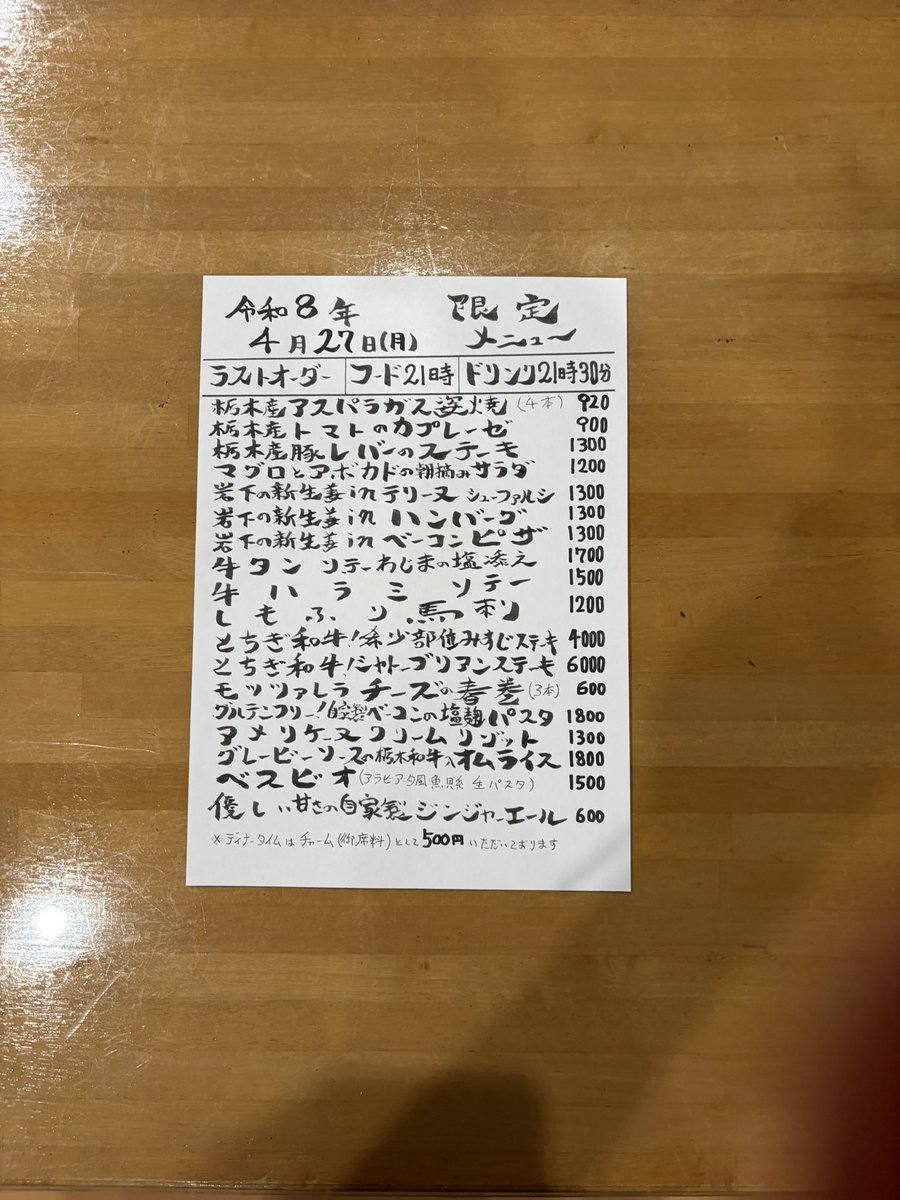 令和8年 限定
4月27日(月) メニュー
ラストオーダー フード21時 ドリンク21時30分
栃木産アスパラガス姿焼(4本) 920
栃木産トマトのカプレーゼ 900
栃木産豚レバーのステーキ 1300
マグロとアボカドの朝摘みサラダ 1200
岩下の新生姜inテリーヌ シューファルシ 1300
岩下の新生姜in ハンバーグ 1300
岩下の新生姜in ベーコンピザ 1300
牛タン ソテーわじまの塩添え 1700
牛ハラミソテー 1500
しもふり馬刺 1200
とちぎ和牛!希少部位みすじステーキ 4000
とちぎ和牛!シャトーブリアンステーキ 6000
モッツァレラチーズの春巻(3本) 600
グルテンフリー!自家製ベーコンの塩麹パスタ 1800
アメリケーヌクリームリゾット 1300
グレービーソースの栃木和牛入オムライス 1800
ベスビオ(アラビアータ風魚貝系 生パスタ) 1500
優しい甘さの自家製ジンジャーエール 600
※ディナータイムはチャーム(御席料)として500円いただいております